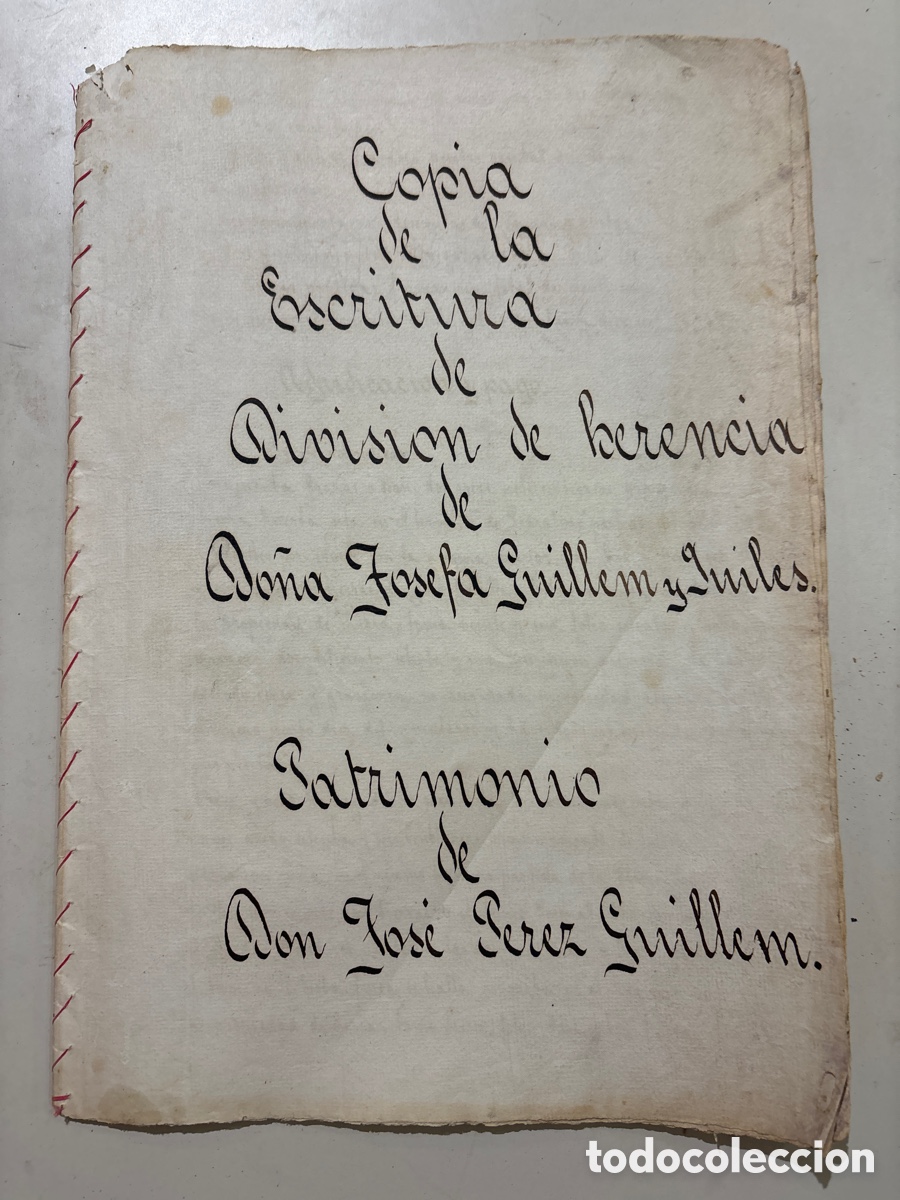 Copia
de la
Escritura
de
Division de herencia
de
Doña Josefa Guillem y Quiles.
Patrimonio
de
Don José Perez Guillem.
todocoleccion